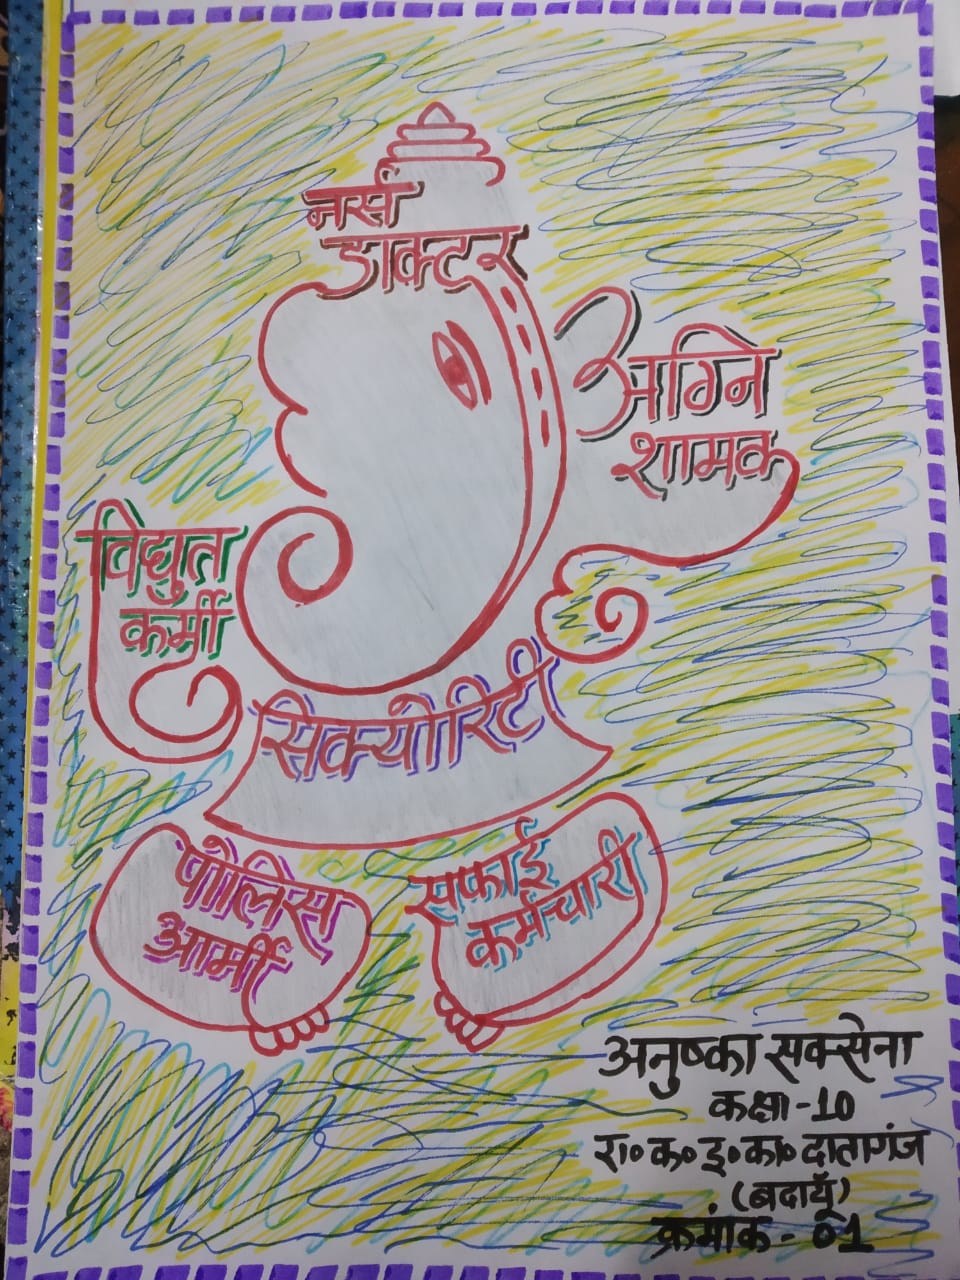 नर्स
डाक्टर
अग्नि
शामक
विद्युत
कर्मी
सिक्योरिटी
पोलिस
आर्मी
सफाई
कर्मचारी
अनुष्का सक्सेना
कक्षा-10
रा० क० इ० का० दातागंज
(बदायूँ)
क्रमांक - 01